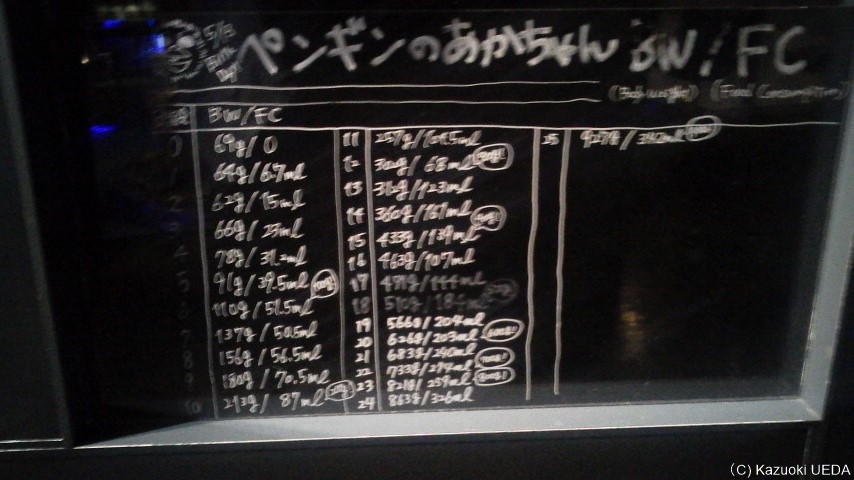 5/3 Birth Day!
ペンギンのあかちゃん BW/FC
(Body weight) (Food Consumption)
BW/FC
0 69g/0
1 64g/6.7ml
2 62g/15ml
3 66g/23ml
4 78g/31.2ml
5 91g/39.5ml
110g/51.5ml 100g!
7 137g/50.5ml
8 156g/56.5ml
9 180g/70.5ml
10 213g/87ml 200g!
11 257g/104.5ml
12 302g/68ml 300g!
13 312g/123ml
14 360g/161ml
15 433g/139ml 400g!
16 463g/107ml
17 491g/144ml
18 510g/184ml
19 566g/204ml
20 626g/203ml 600g!
21 683g/240ml
22 733g/274ml 700g!
23 821g/259ml 800g!
24 863g/326ml
25 927g/392ml
(C) Kazuoki UEDA